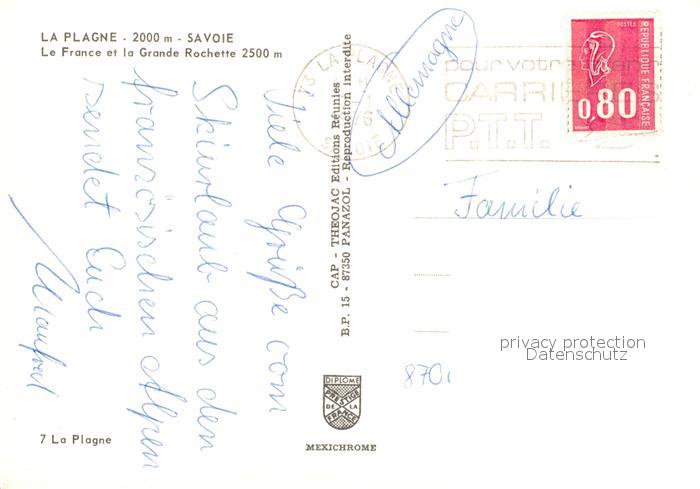 LA PLAGNE - 2000 m - SAVOIE
Le France et la Grande Rochette 2500 m
Viele Grüße vom
Skiurlaub aus den
französischen Alpen
sendet Euch
Manfred
7 La Plagne
CAP - THEOJAC Editions Réunies
B.P. 15 - 87350 PANAZOL - Reproduction interdite
DIPLOME
PRESTIGE
DE LA
FRANCE
MEXICHROME
73 LA PLAGNE
Allemagne
pour votre
P.T.T.
POSTES
REPUBLIQUE FRANÇAISE
0,80
Familie
870
privacy protection
Datenschutz